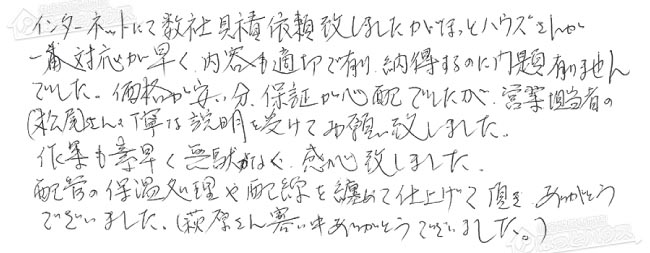 インターネットにて数社見積依頼致しましたがほっとハウスさんが
一番対応が早く、内容も適切で有り、納得するのに問題有りません
でした。価格が安い分、保証が心配でしたが、営業担当者の
(松尾さん)丁寧な説明を受けてお願い致しました。
作業も素早く無駄がなく、感心致しました。
配管の保温処理や配線を纏めて仕上げて頂き、ありがとう
ございました。(萩原さん寒い中ありがとうございました。)